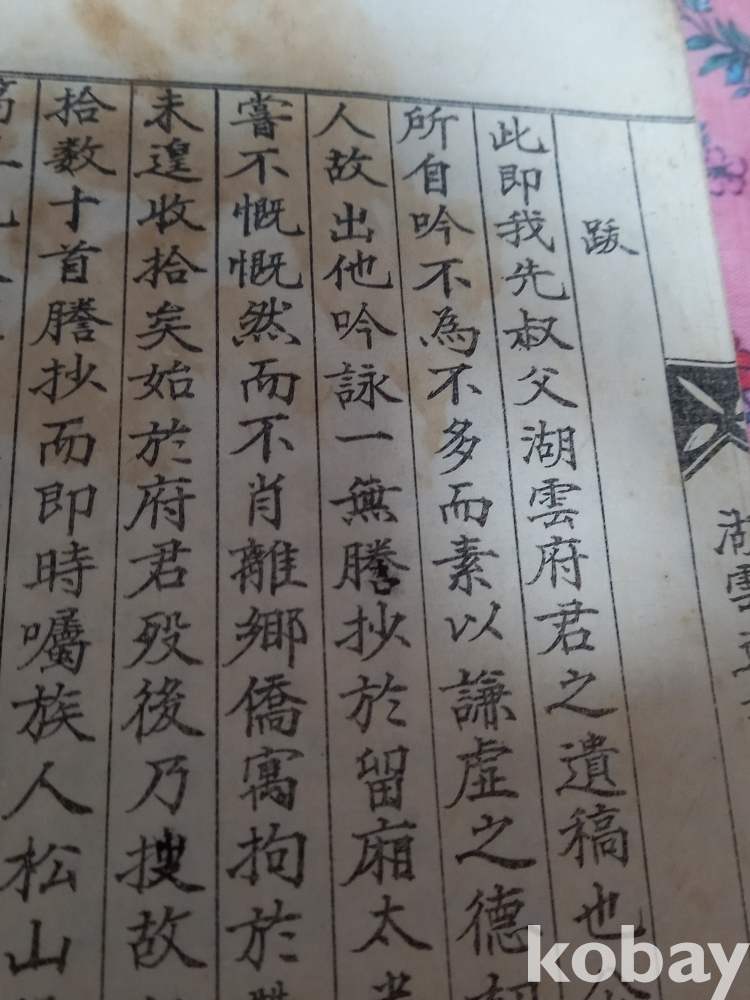 湖雲
跋
此即我先叔父湖雲府君之遺稿也公
所自吟不為不多而素以謙虛之德
人故出他吟詠一無謄抄於留廂太
嘗不慨慨然而不肖離鄉僑寓拘於
未遑收拾矣始於府君歿後乃搜故
拾数十首謄抄而即時囑族人松山
kobay